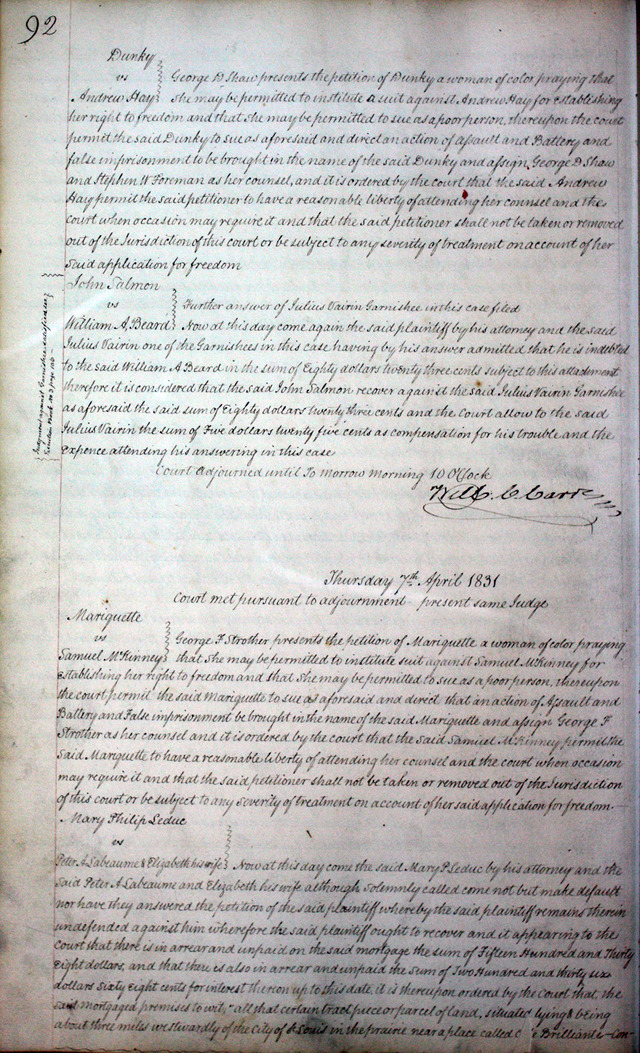 92
Dunky
vs
George D Shaw presents the petition of Dunky a woman of color praying that
Andrew Hay She may be permitted to institute a suit against Andrew Hay for establishing
her right to freedom and that She may be permitted to sue as a poor person, thereupon the court
permit the said Dunky to sue as aforesaid and direct an action of assault and Battery and
false imprisonment to be brought in the name of the said Dunky and assign George D Shaw
and Stephen W Foreman as her counsel, and it is ordered by the court that the said Andrew
Hay permit the said petitioner to have a reasonable liberty of attending her counsel and the
court when occasion may require it and that the said petitioner shall not be taken or removed
out of the Jurisdiction of this court or be subject to any severity of treatment on account of her
said application for freedom
John Salmon
vs
Further answer of Julius Vairin Garnishee in this case filed
William A Beard Now at this day come again the said plaintiff by his attorney and the said
Julius Vairin one of the Garnishees in this case having by his answer admitted that he is indebted
to the said William A Beard in the sum of Eighty dollars twenty three cents subject to this attachment
therefore it is considered that the said John Salmon recover against the said Julius Vairin Garnishee
as aforesaid the said sum of Eighty dollars twenty three cents and the Court allow to the said
Julius Vairin the sum of Five dollars twenty five cents as compensation for his trouble and the
expence attending his answering in this case
Judgment against Garnishee
Court adjourned until To Morrow Morning 10 O'Clock
Will. C. Carr
Thursday 7th April 1831
Court met pursuant to adjournment present same Judge
Mariquette
vs
George F Strother presents the petition of Mariquette a woman of color praying
Samuel McKinney that She may be permitted to institute suit against Samuel McKinney for
establishing her right to freedom and that She may be permitted to sue as a poor person, thereupon
the court permit the said Mariquette to sue as aforesaid and direct that an action of Assault and
Battery and False imprisonment be brought in the name of the said Mariquette and assign George F
Strother as her counsel and it is ordered by the court that the said Samuel McKinney permit the
said Mariquette to have a reasonable liberty of attending her counsel and the court when occasion
may require it and that the said petitioner shall not be taken or removed out of the Jurisdiction
of this court or be subject to any severity of treatment on account of her said application for freedom.
Mary Philip Leduc
vs
Peter A Labeaume & Elizabeth his wife Now at this day come the said Mary P Leduc by his attorney and the
said Peter A Labeaume and Elizabeth his wife although Solemnly called come not but make default
nor have they answered the petition of the said plaintiff whereby the said plaintiff remains therein
undefended against him wherefore the said plaintiff ought to recover and it appearing to the
Court that there is in arrear and unpaid on the said mortgage the sum of Fifteen Hundred and Thirty
Eight dollars, and that there is also in arrear and unpaid the Sum of Two Hundred and thirty six
dollars Sixty Eight cents for interest thereon up to this date, it is thereupon ordered by the Court that, the
said mortgaged premises to wit, all that certain tract piece or parcel of land, situated lying & being
about three miles westwardly of the City of St Louis in the prairie near a place called Brilliante Con-